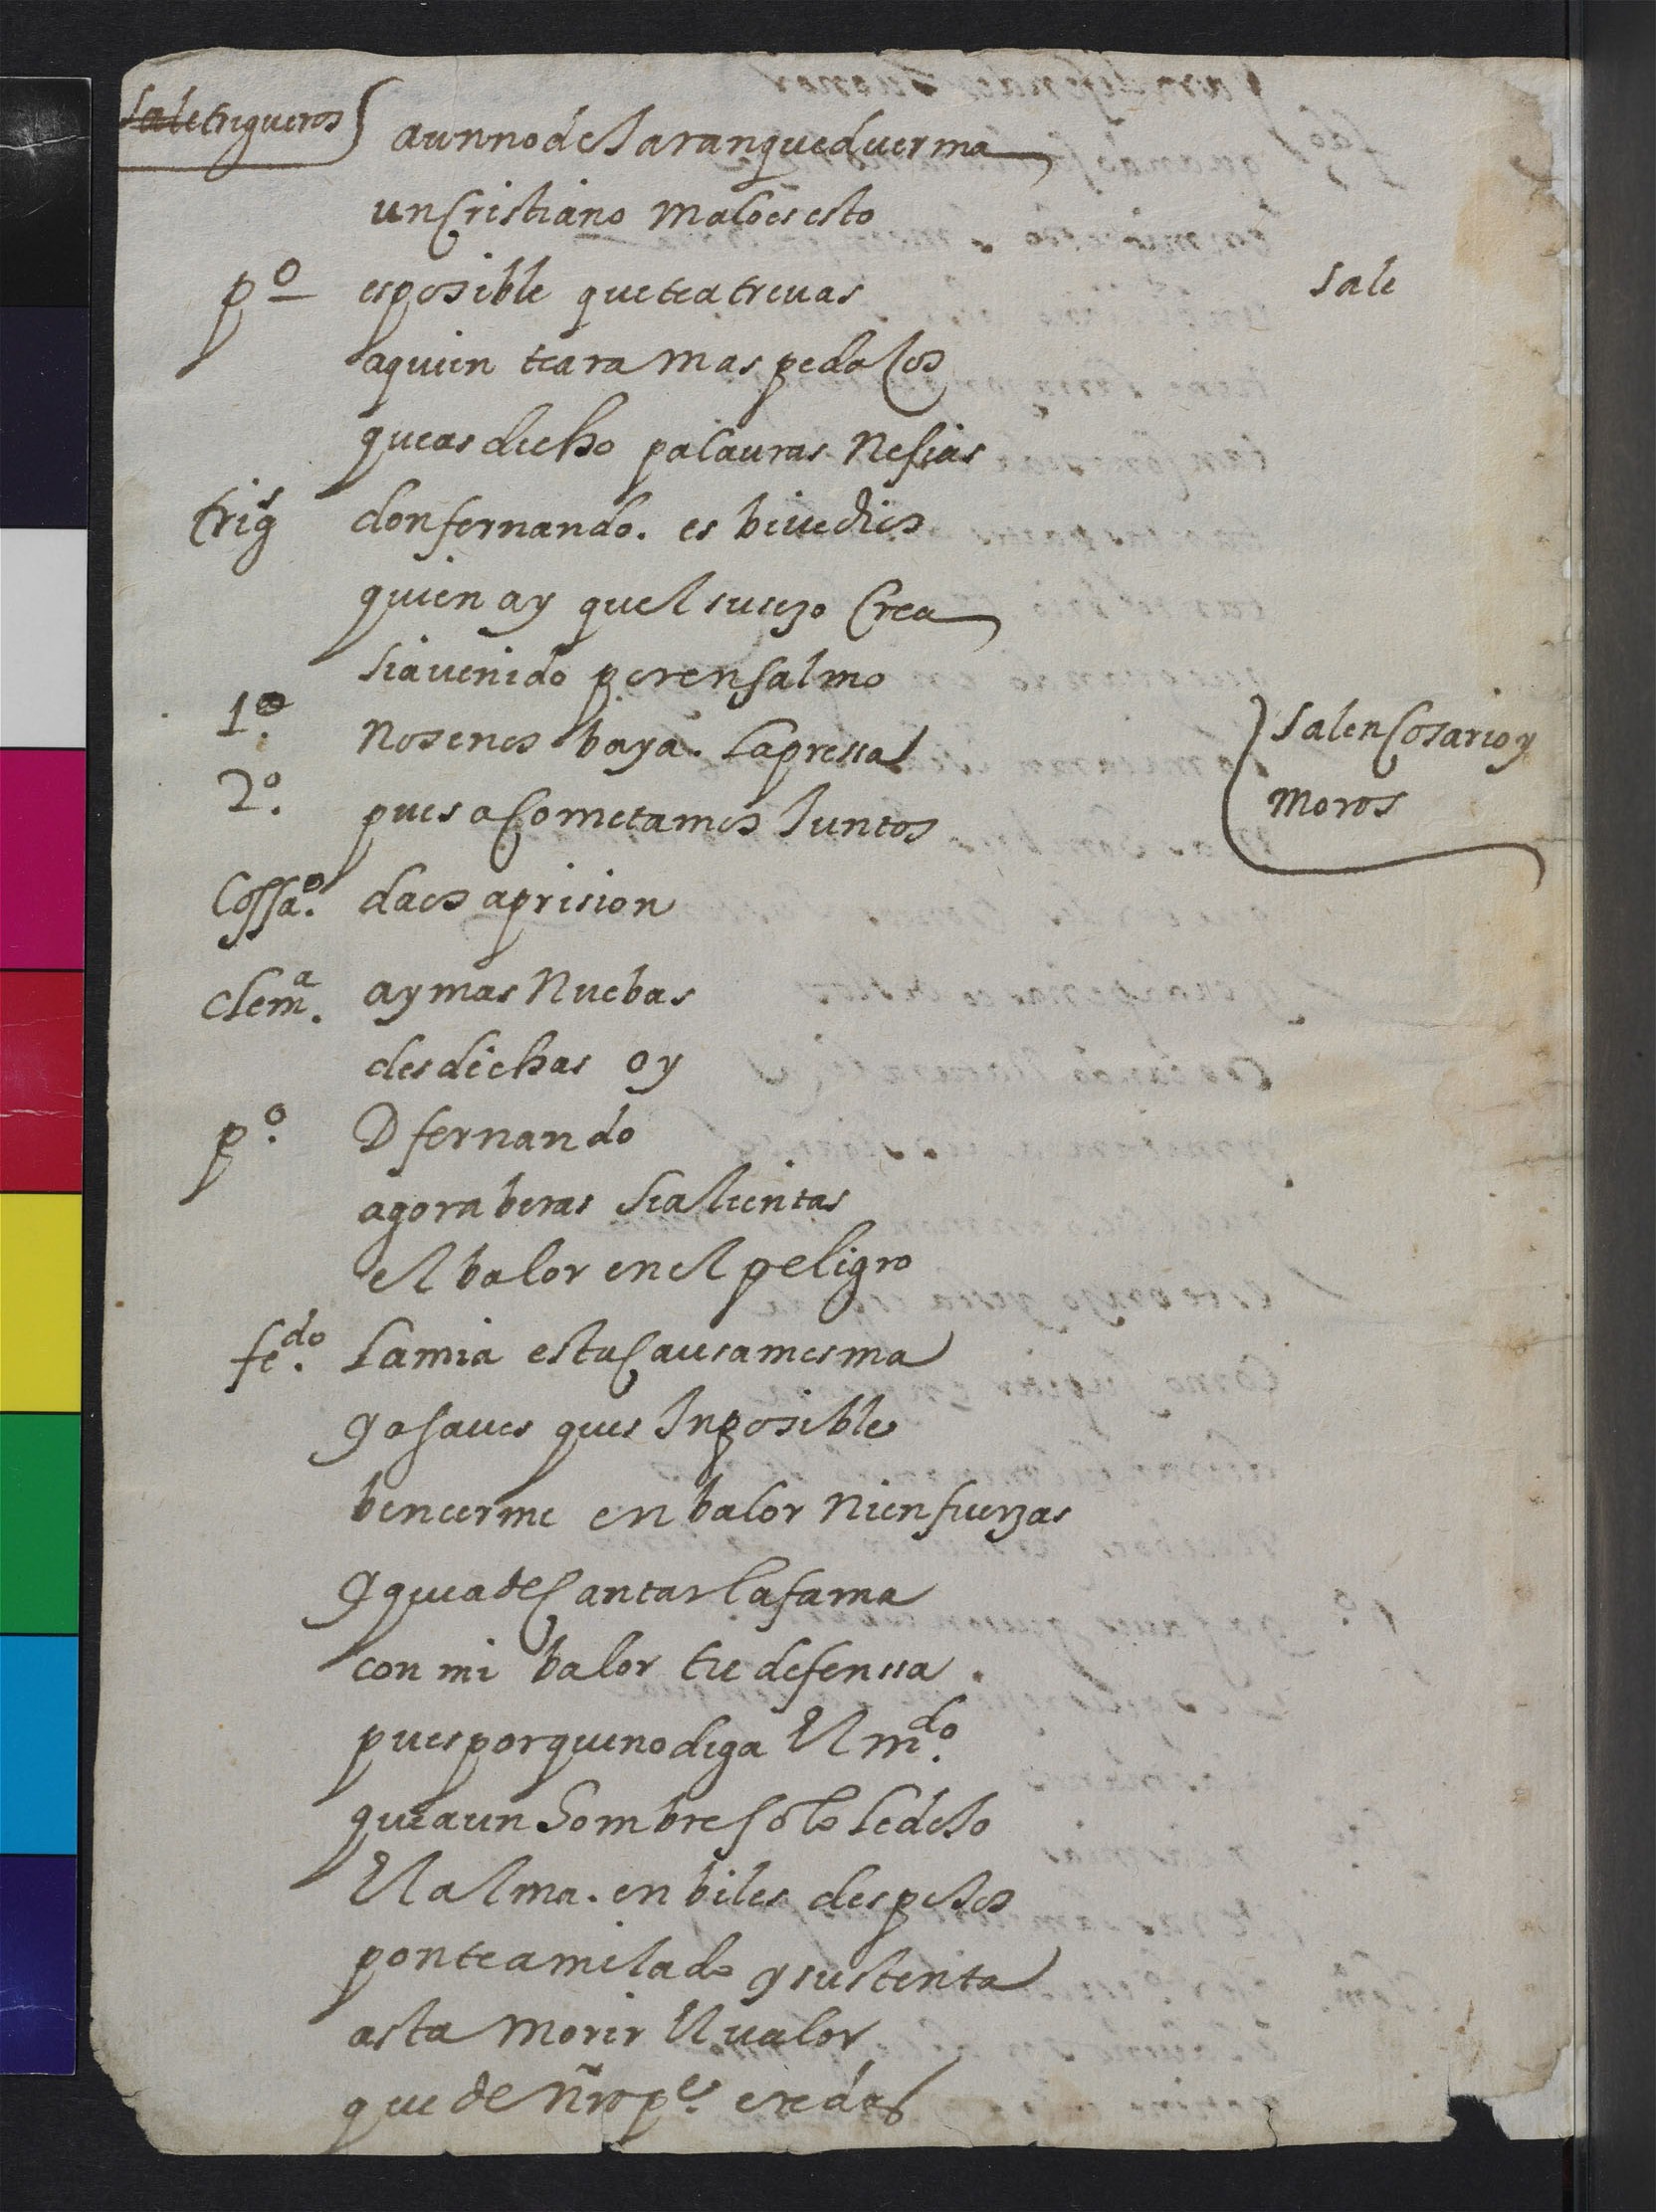 sale trigueros aun no dejaran que duerma
un cristiano malo es esto
pº es posible que te atreuas sale
a quien te ara mas pedaços
que as dicho palauras nesias
trigˢ don fernando. es biue dios
quien ay quel suçeso crea
si a uenido por ensalmo
1º. no se nos baya. la pressa salen cosario y
2º. pues acometamos juntos moros
cossaº. daos a prision
clemª. ay mas nuebas
desdichas oy
pº. D fernando
agora beras si alientas
el balor en el peligro
feᵈᵒ. la mia es tu causa mesma
ya saues ques inposible
bencerme en balor ni en fuerzas
y que a de cantar la fama
con mi balor tu defenssa.
pues porque no diga el mᵈᵒ.
que a un hombre solo le dejo
el alma. en biles despojos
ponte a mi lado y sustenta
asta morir el ualor
que de nro pᵉ. eredas